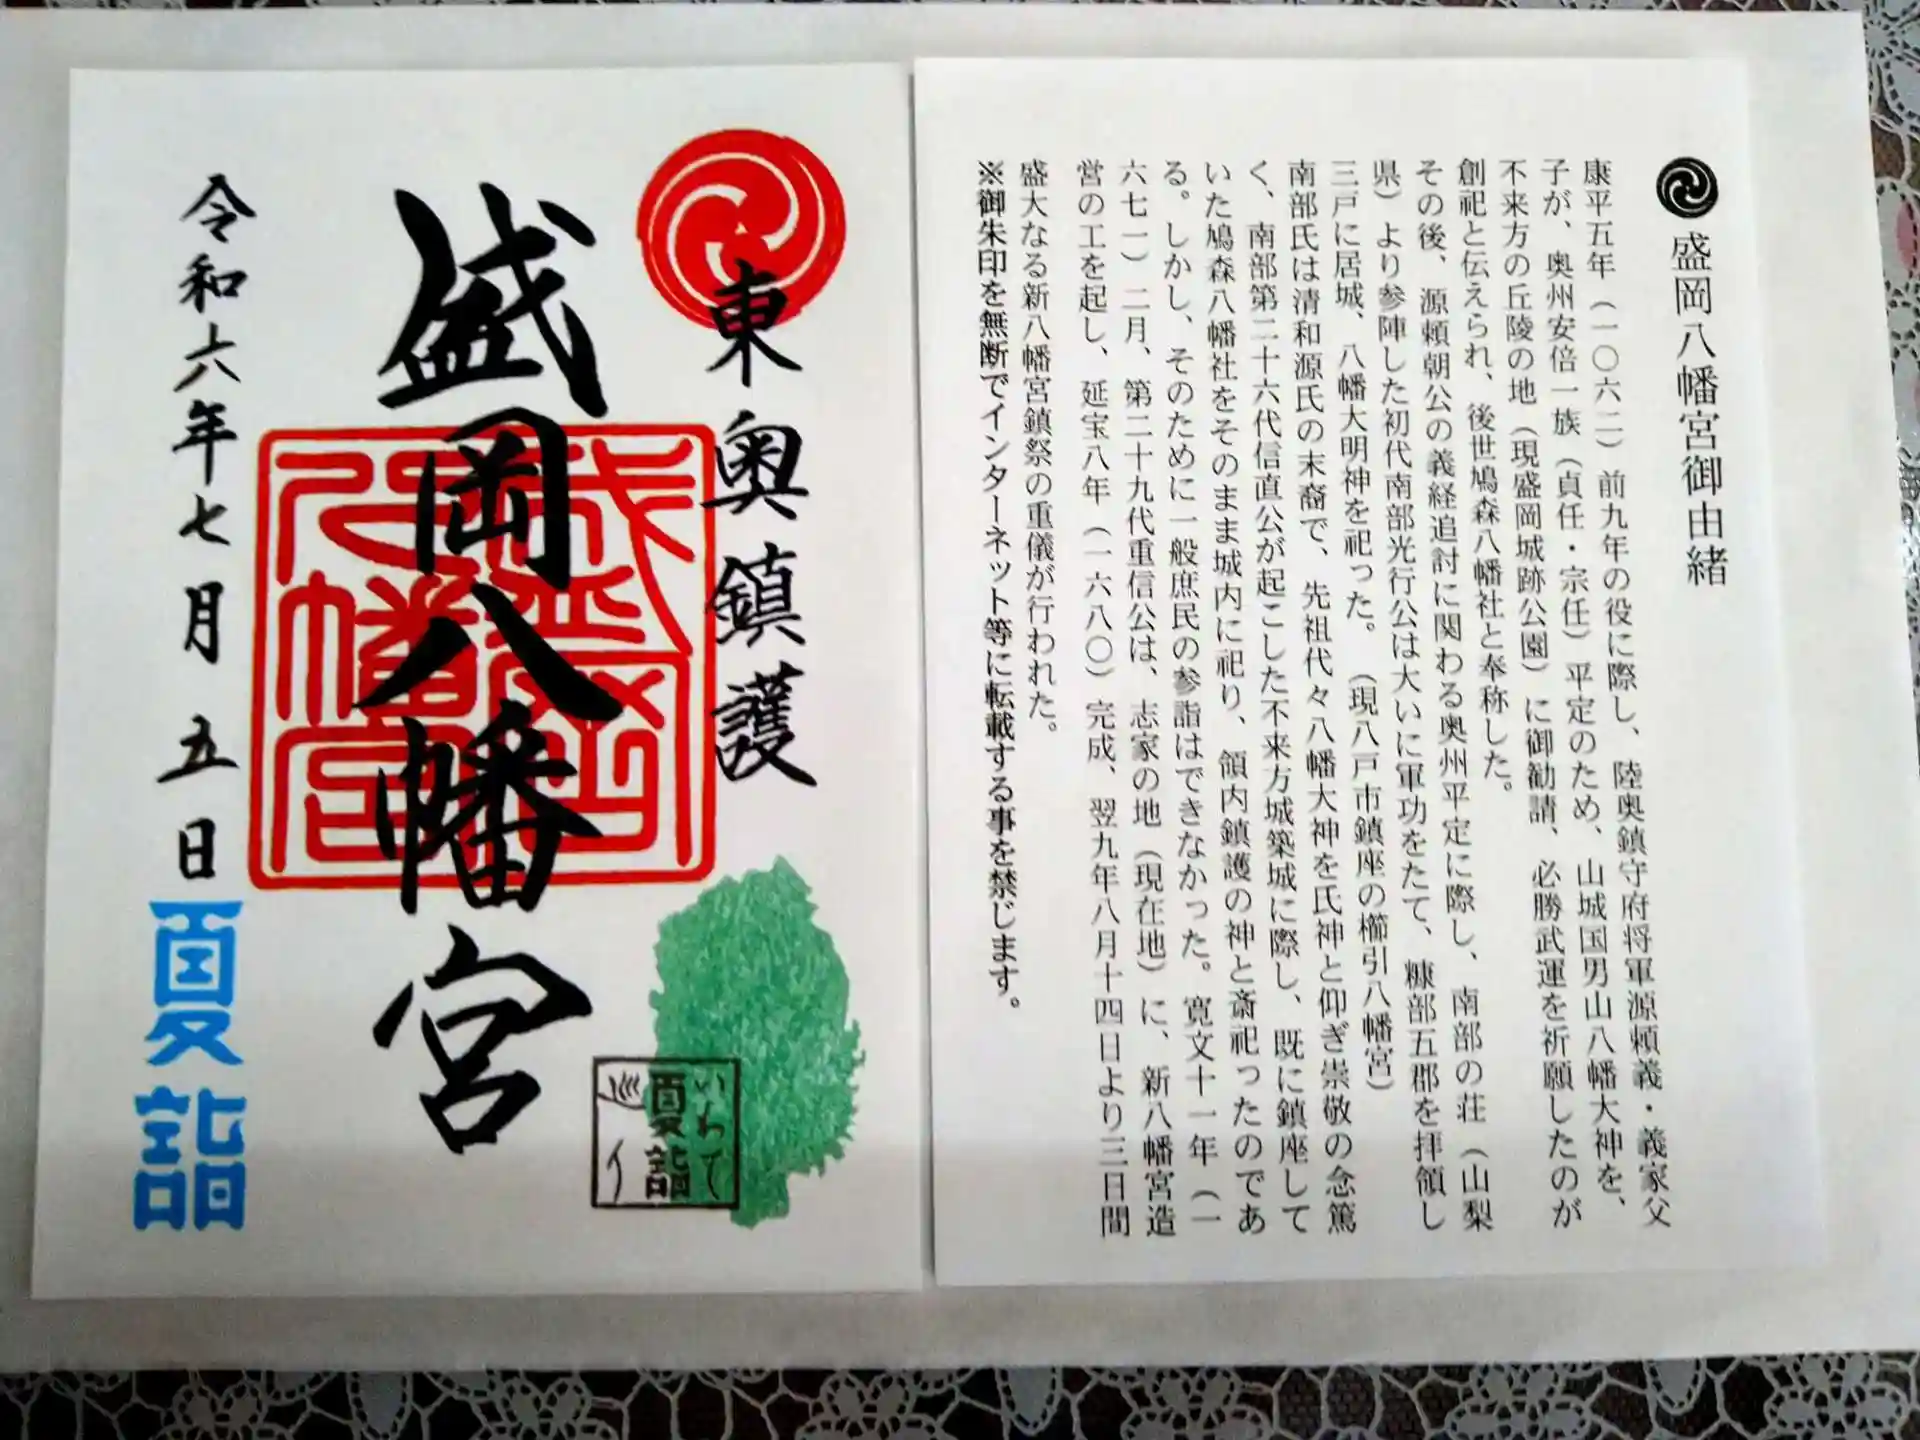 東奥鎮護
盛岡八幡宮
令和六年七月五日
夏詣
いわて
夏詣
盛岡八幡宮御由緒
康平五年（一〇六二）前九年の役に際し、陸奥鎮守府将軍源頼義・義家父
子が、奥州安倍一族（貞任・宗任）平定のため、山城国男山八幡大神を、
不来方の丘陵の地（現盛岡城跡公園）に御勧請、必勝武運を祈願したのが
創祀と伝えられ、後世鳩森八幡社と奉称した。
その後、源頼朝公の義経追討に関わる奥州平定に際し、南部の荘（山梨
県）より参陣した初代南部光行公は大いに軍功をたて、糠部五郡を拝領し
三戸に居城、八幡大明神を祀った。（現八戸市鎮座の櫛引八幡宮）
南部氏は清和源氏の末裔で、先祖代々八幡大神を氏神と仰ぎ崇敬の念篤
く、南部第二十六代信直公が起こした不来方城築城に際し、既に鎮座して
いた鳩森八幡社をそのまま城内に祀り、領内鎮護の神と斎祀ったのであ
る。しかし、そのために一般庶民の参詣はできなかった。寛文十一年（一
六七一）二月、第二十九代重信公は、志家の地（現在地）に、新八幡宮造
営の工を起し、延宝八年（一六八〇）完成、翌九年八月十四日より三日間
盛大なる新八幡宮鎮祭の重儀が行われた。
※御朱印を無断でインターネット等に転載する事を禁じます。